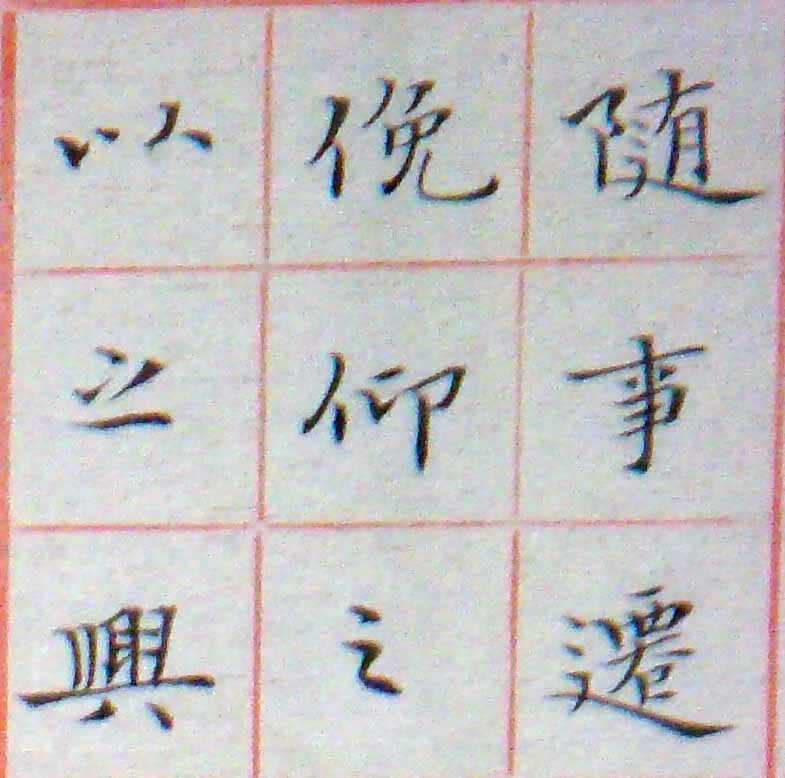 随事遷
俛仰之
以之興